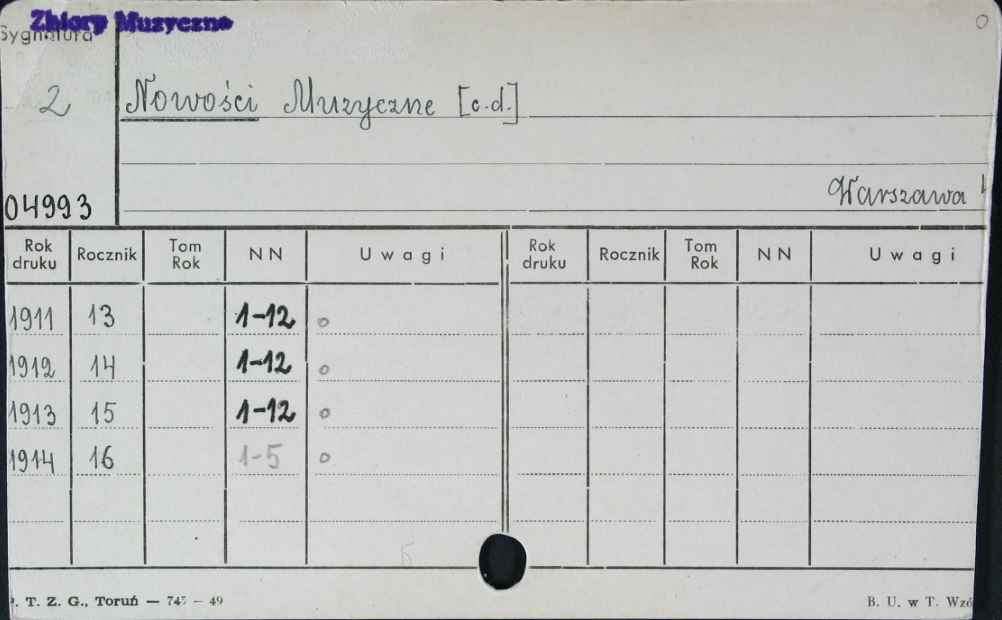 Zbiory Muzyczne
Sygnatura
2
Nowości Muzyczne [c.d.]
04993
Warszawa
Rok druku Rocznik Tom Rok NN Uwagi Rok druku Rocznik Tom Rok NN Uwagi
1911 13 1-12 o
1912 14 1-12 o
1913 15 1-12 o
1914 16 1-5 o
T. Z. G., Toruń — 745 — 49
B. U. w T.